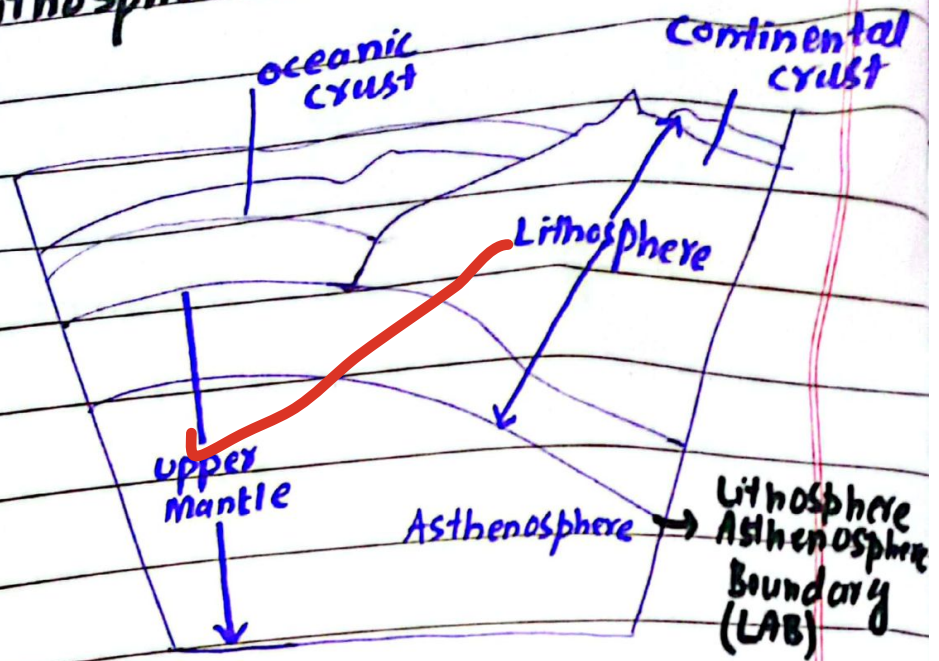 oceanic
crust
Continental
crust
Lithosphere
upper
Mantle
Asthenosphere
Lithosphere
Asthenosphere
Boundary
(LAB)